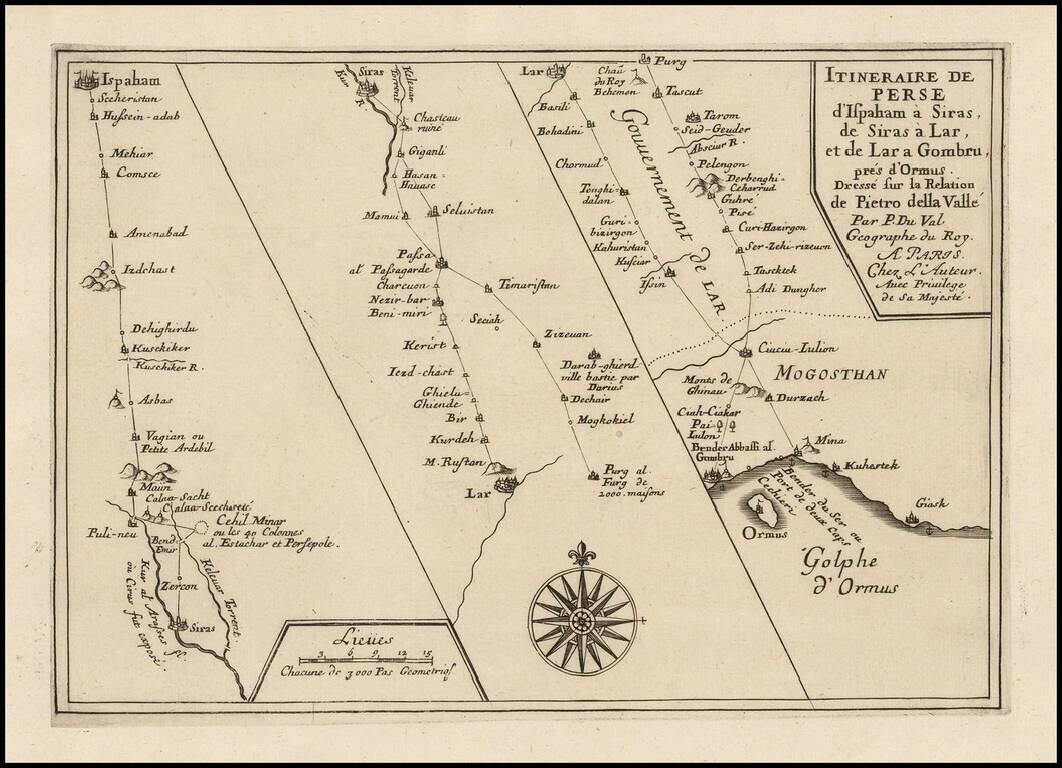 ITINERAIRE DE
PERSE
d'Ispaham à Siras,
de Siras à Lar,
et de Lar a Gombru,
prés d'Ormus.
Dressé sur la Relation
de Pietro della Vallé
Par P. Du Val
Geographe du Roy.
A PARIS.
Chez L'Auteur.
Avec Privilege
de Sa Majesté.
Ispaham
Sceheristan
Hussein-adab
Mehiar
Comsce
Amenabad
Izdchast
Dehighirdu
Kusckéker
Kusckéker R.
Asbas
Vagian ou
Petite Ardebil
Maïin
Calaa-Sacht
Calaa-Scechuseté
Cehil Minar
ou les 40 Colonnes
al. Estachar et Persepole.
Puli-neu
Bend
Emir
Zercon
Kur al Arasses fl.
ou Cirus fut exposé.
Keleuar Torrent.
Siras
Siras
Kur R.
Keleuar
Torrent
Chasteau
ruiné
Giganli
Hasan-
Hauase
Mamui
Seluistan
Passa
al Passagarde
Charcuon
Nezir-bar
Beni-miri
Timaristan
Seciah
Zizeuan
Kerist
Iezd-chast
Ghielu-
Ghiende
Bir
Kurdeh
M. Rustan
Lar
Darab-ghierd
ville bastie par
Darius
Dechair
Mogkokiel
Purg al.
Furg de
2000. maisons
Lieües
3 6 9 12 15
Chacune de 3000 Pas Geometriqs
Lar
Basili
Bohadini
Chormud
Tenghi-
dalan
Guri-
bizirgon
Kahuristan
Kusciar
Issin
Gouvernement de LAR
Purg
Chau
du Roy
Behemen
Tascut
Tarom
Seid-Geuder
Absciur R.
Pelengon
Derbenghi-
Ceharrud
Guhre
Pisé
Curi-Hazirgon
Ser-Zehi-rizeuon
Tascktek
Adi Dungher
Ciuciu-Iulion
MOGOSTHAN
Monts de
Ghinau
Durzach
Ciah-Ciakar
Pai
Lulon
Bender Abbassi al.
Gombru
Mina
Kuhestek
Bender du Ser ou
Port de deux Caps
Cechieri
Giask
Ormus
Golphe
d'Ormus